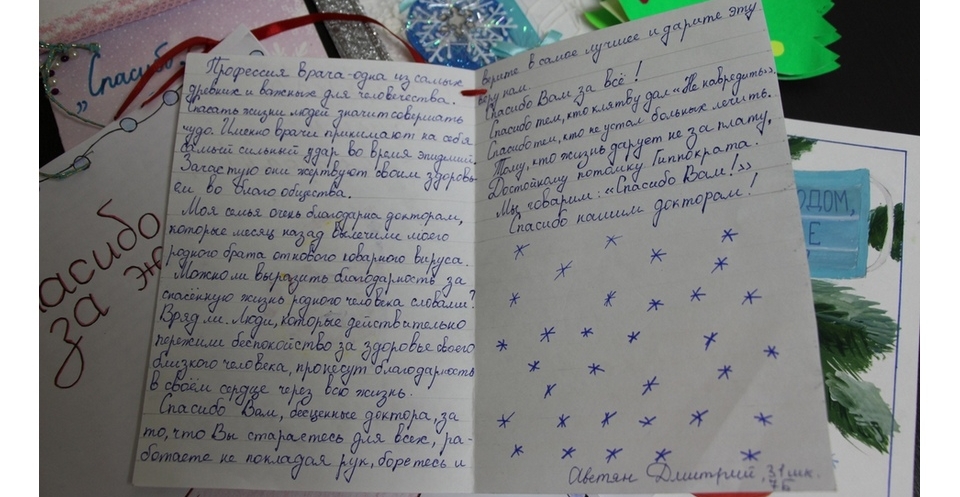 „Спасибо
Профессия врача-одна из самых
древних и важных для человечества.
Спасать жизни людей значит совершать
чудо. Именно врачи принимают на себя
самый сильный удар во время эпидемий.
Зачастую они жертвуют своим здоровь-
ем во благо общества.
Моя семья очень благодарна докторам,
которые месяц назад вылечили моего
родного брата от нового коварного вируса.
Можно ли выразить благодарность за
спасённую жизнь родного человека словами?
Вряд ли. Люди, которые действительно
пережили беспокойство за здоровье своего
близкого человека, пронесут благодарность
в своём сердце через всю жизнь.
Спасибо Вам, бесценные доктора, за
то, что Вы стараетесь для всех, ра-
ботаете не покладая рук, боретесь и
верите в самое лучшее и дарите эту
веру нам.
Спасибо Вам за всё!
Спасибо тем, кто клятву дал «Не навредить».
Спасибо тем, кто не устал больных лечить.
Тому, кто жизнь дарует не за плату,
Достойному потомку Гиппократа.
Мы говорим: «Спасибо Вам!»
Спасибо нашим докторам!
Аветян Дмитрий, 31 шк.
7Б
асибо
за
ОДОМ,
Е